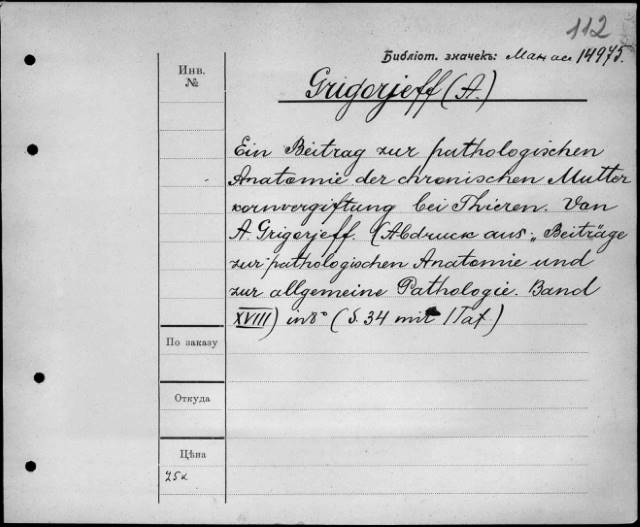 112
Библіот. значекъ: 14975.
Инв.
№
Grigorjeff (A.)
Ein Beitrag zur pathologischen
Anatomie der chronischen Mutter
kornvergiftung bei Thieren. Von
A. Grigorjeff. (Abdruck aus „Beiträge
zur pathologischen Anatomie und
zur allgemeine Pathologie. Band
XVIII) in 8° (S. 34 mit 1 Taf.)
По заказу
Откуда
Цѣна
25к